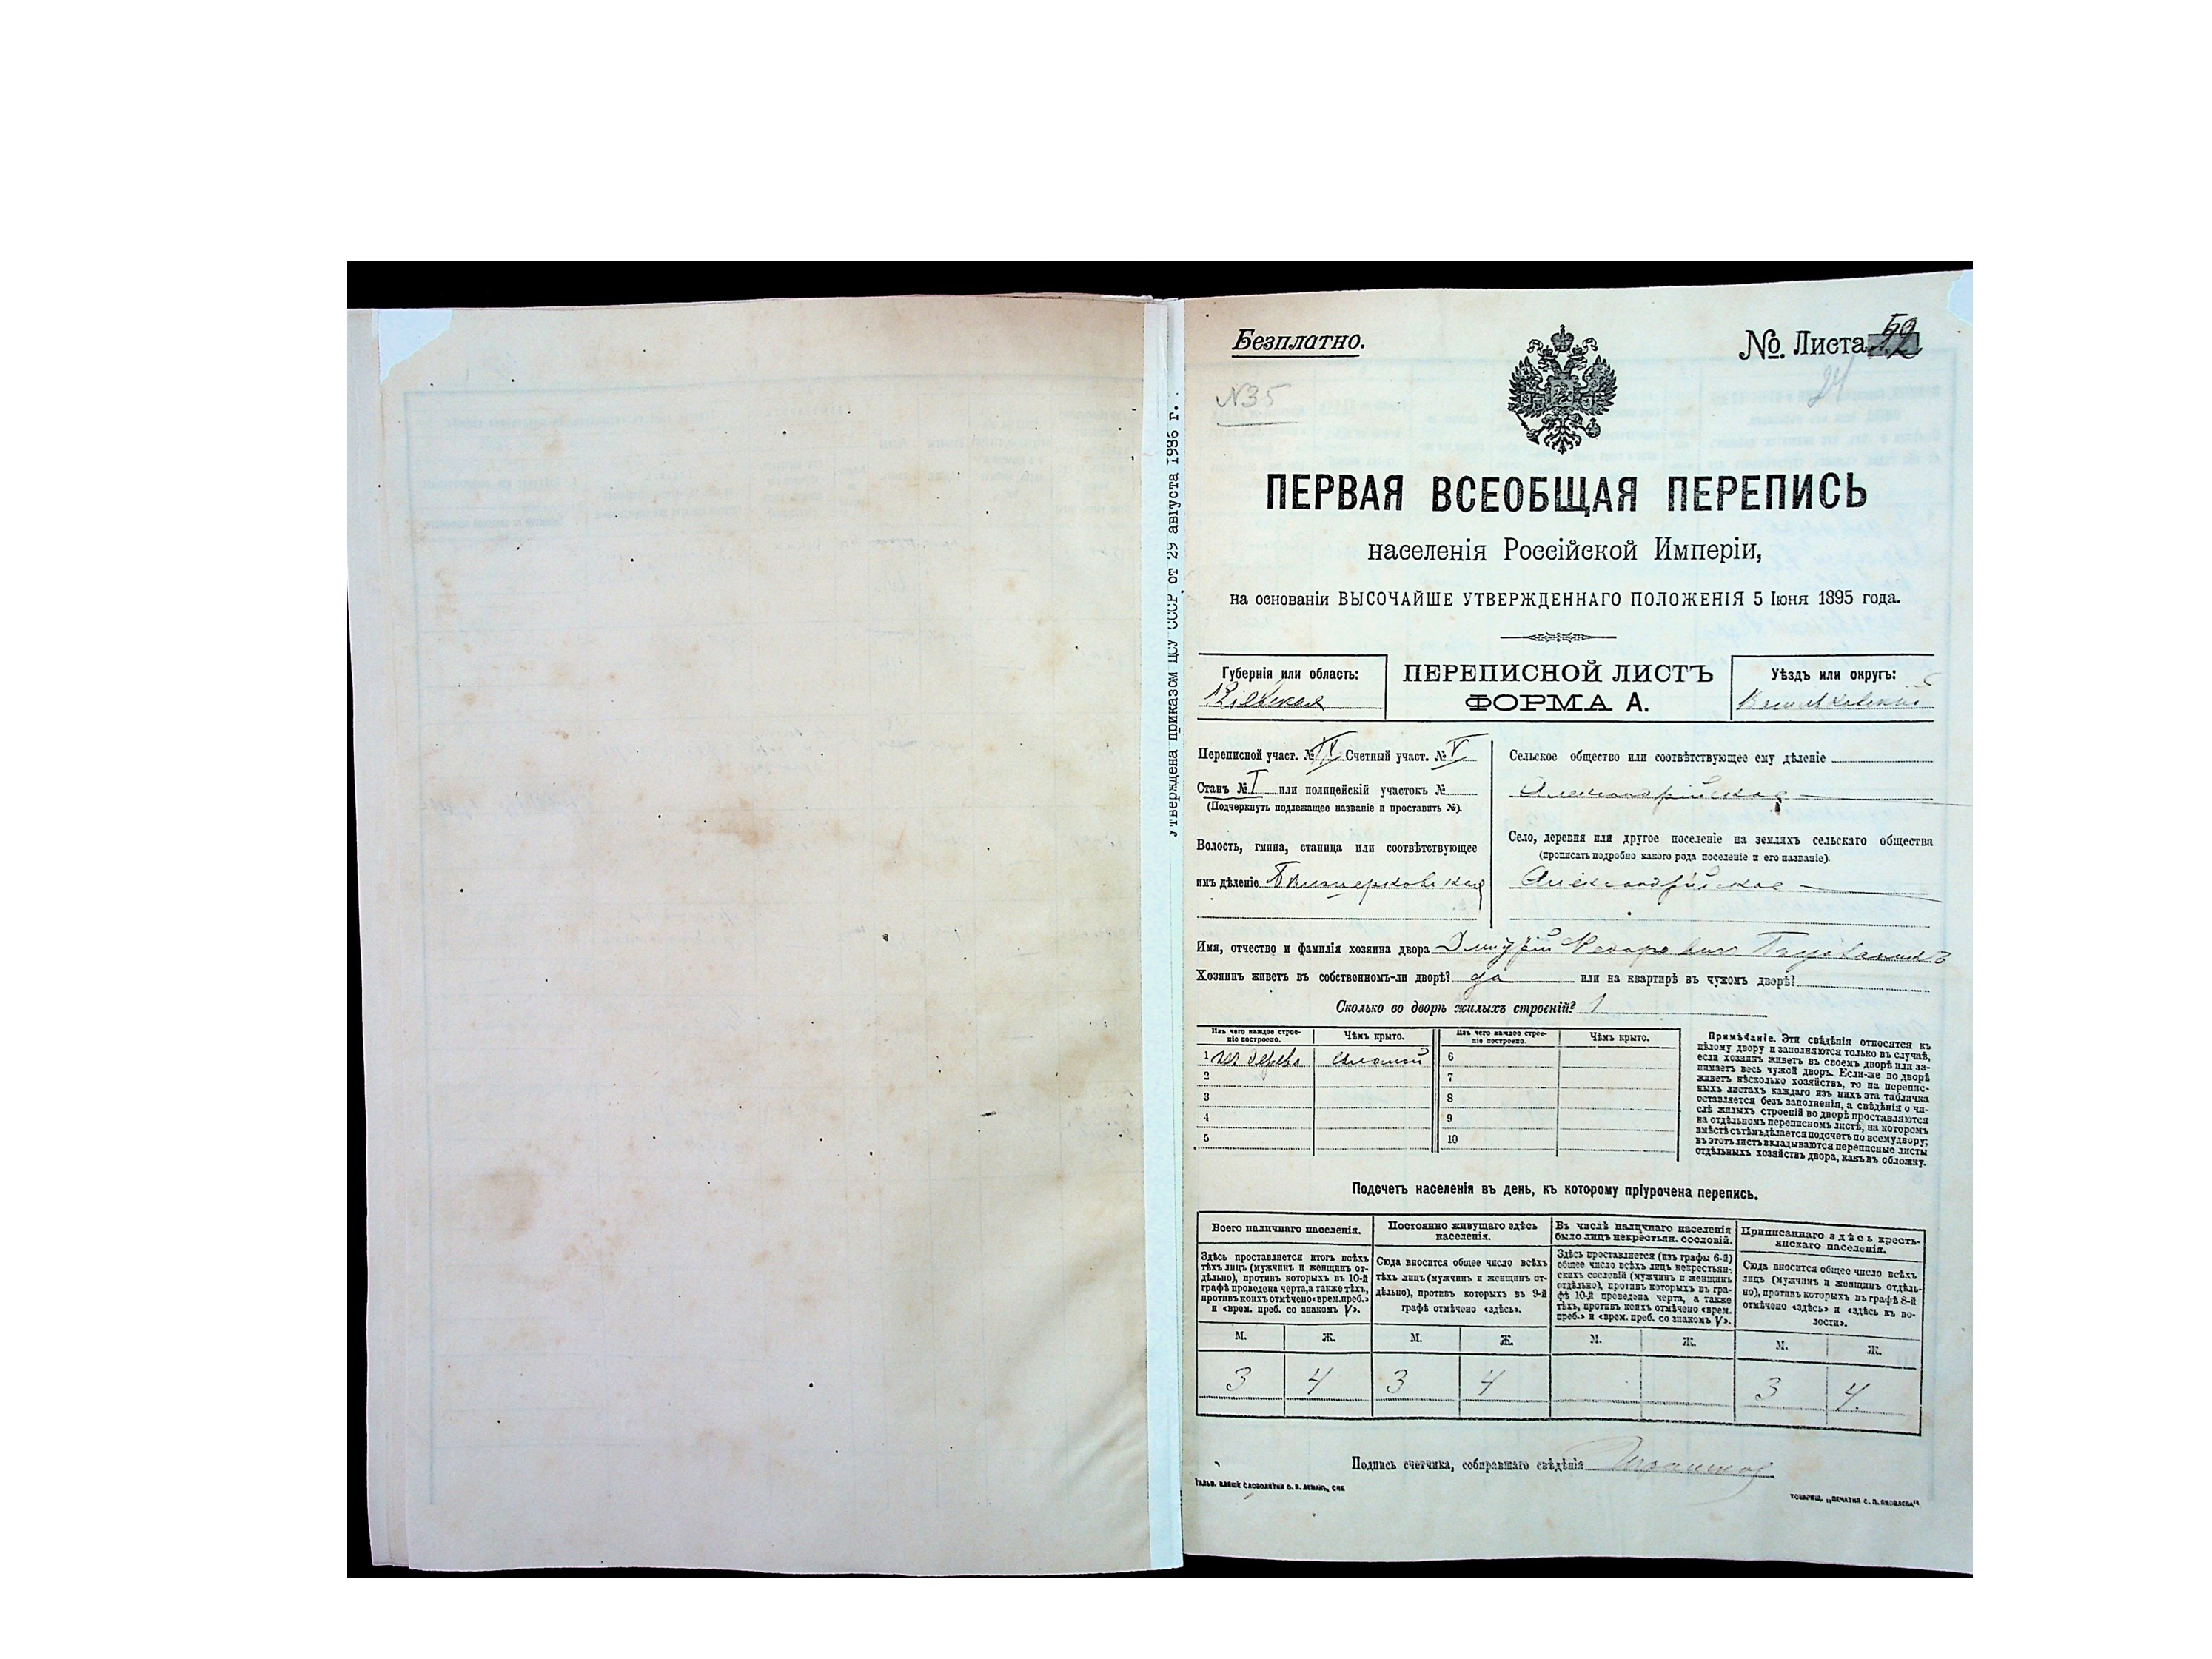 Утверждена приказом ЦСУ СССР от 29 августа 1986 г.
Безплатно.
№. Листа 52
21
N35
ПЕРВАЯ ВСЕОБЩАЯ ПЕРЕПИСЬ
населенія Россійской Имперіи,
на основаніи ВЫСОЧАЙШЕ УТВЕРЖДЕННАГО ПОЛОЖЕНІЯ 5 Іюня 1895 года.
Губернія или область:
Кіевская
ПЕРЕПИСНОЙ ЛИСТЪ
ФОРМА А.
Уѣздъ или округъ:
Васильковскій
Переписной участ. № IV Счетный участ. № V
Станъ № I или полицейскій участокъ №
(Подчеркнуть подлежащее названіе и проставить №).
Волость, гмина, станица или соотвѣтствующее
имъ дѣленіе Бѣлоцерковская
Сельское общество или соотвѣтствующее ему дѣленіе
Александрійское
Село, деревня или другое поселеніе на земляхъ сельскаго общества
(прописать подробно какого рода поселеніе и его названіе).
Александрійское
Имя, отчество и фамилія хозяина двора Дмитрій
Хозяинъ живетъ въ собственномъ-ли дворѣ? да или на квартирѣ въ чужомъ дворѣ?
Сколько во дворѣ жилыхъ строеній? 1
Изъ чего каждое строе-
ніе построено.
Чѣмъ крыто.
Изъ чего каждое строе-
ніе построено.
Чѣмъ крыто.
1 изъ дерева соломой 6
2 7
3 8
4 9
5 10
Примѣчаніе. Эти свѣдѣнія относятся къ
цѣлому двору и заполняются только въ случаѣ,
если хозяинъ живетъ въ своемъ дворѣ или за-
нимаетъ весь чужой дворъ. Если-же во дворѣ
живетъ нѣсколько хозяйствъ, то на перепис-
ныхъ листахъ каждаго изъ нихъ эта табличка
оставляется безъ заполненія, а свѣдѣнія о чи-
слѣ жилыхъ строеній во дворѣ проставляются
на отдѣльномъ переписномъ листѣ, на которомъ
вмѣстѣ съ тѣмъ дѣлается подсчетъ по всему двору;
въ этотъ листъ вкладываются переписные листы
отдѣльныхъ хозяйствъ двора, какъ въ обложку.
Подсчетъ населенія въ день, къ которому пріурочена перепись.
Всего наличнаго населенія.
Здѣсь проставляется итогъ всѣхъ
тѣхъ лицъ (мужчинъ и женщинъ от-
дѣльно), противъ которыхъ въ 10-й
графѣ проведена черта, а также тѣхъ,
противъ коихъ отмѣчено «врем. преб.»
и «врем. преб. со знакомъ V».
Постоянно живущаго здѣсь
населенія.
Сюда вносится общее число всѣхъ
тѣхъ лицъ (мужчинъ и женщинъ от-
дѣльно), противъ которыхъ въ 9-й
графѣ отмѣчено «здѣсь».
Въ числѣ наличнаго населенія
было лицъ некрестьян. сословій.
Здѣсь проставляется (изъ графы 6-й)
общее число всѣхъ лицъ некрестьян-
скихъ сословій (мужчинъ и женщинъ
отдѣльно), противъ которыхъ въ гра-
фѣ 10-й проведена черта, а также
тѣхъ, противъ коихъ отмѣчено «врем.
преб.» и «врем. преб. со знакомъ V».
Приписаннаго здѣсь кресть-
янскаго населенія.
Сюда вносится общее число всѣхъ
лицъ (мужчинъ и женщинъ отдѣль-
но), противъ которыхъ въ графѣ 8-й
отмѣчено «здѣсь» и «здѣсь къ во-
лости».
М. Ж. М. Ж. М. Ж. М. Ж.
3 4 3 4 3 4
Подпись счетчика, собиравшаго свѣдѣнія
ГАЛЬВ. КЛИШЕ СЛОВОЛИТНИ О. И. ЛЕМАНЪ, СПБ
ТОВАРИЩ. „ПЕЧАТНЯ С. П. ЯКОВЛЕВА“